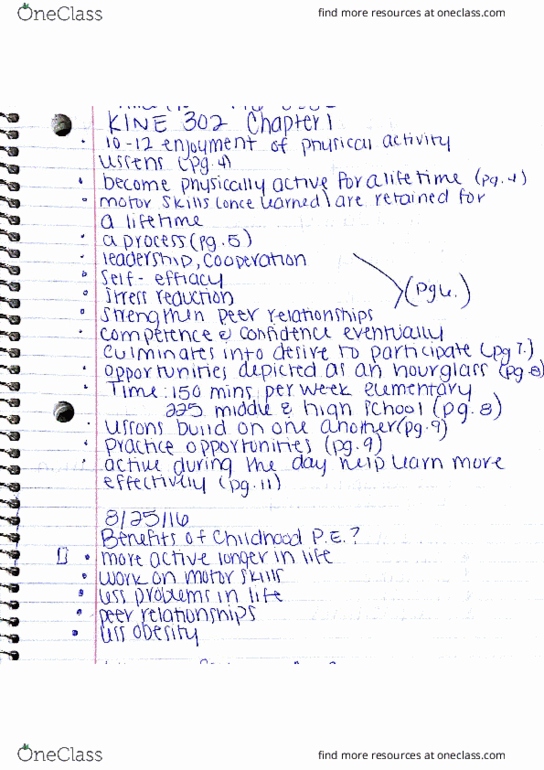 OneClass
find more resources at oneclass.com
KINE 302 Chapter 1
• 10-12 enjoyment of physical activity
lessens (pg. 4)
• become physically active for a lifetime (pg. 4)
• motor skills (once learned) are retained for
a lifetime
• a process (pg. 5)
• leadership, cooperation
• self-efficacy
• stress reduction
(pg 6.)
• strengthen peer relationships
• competence & confidence eventually
culminates into desire to participate (pg 7.)
• opportunities depicted as an hourglass (pg. 8)
• Time: 150 mins per week elementary
225 middle & high school (pg. 8)
• lessons build on one another (pg. 9)
• practice opportunities (pg. 9)
• active during the day help learn more
effectively (pg. 11)
8/25/16
Benefits of Childhood P.E.?
• more active longer in life
• work on motor skills
• less problems in life
• peer relationships
• less obesity
OneClass
find more resources at oneclass.com